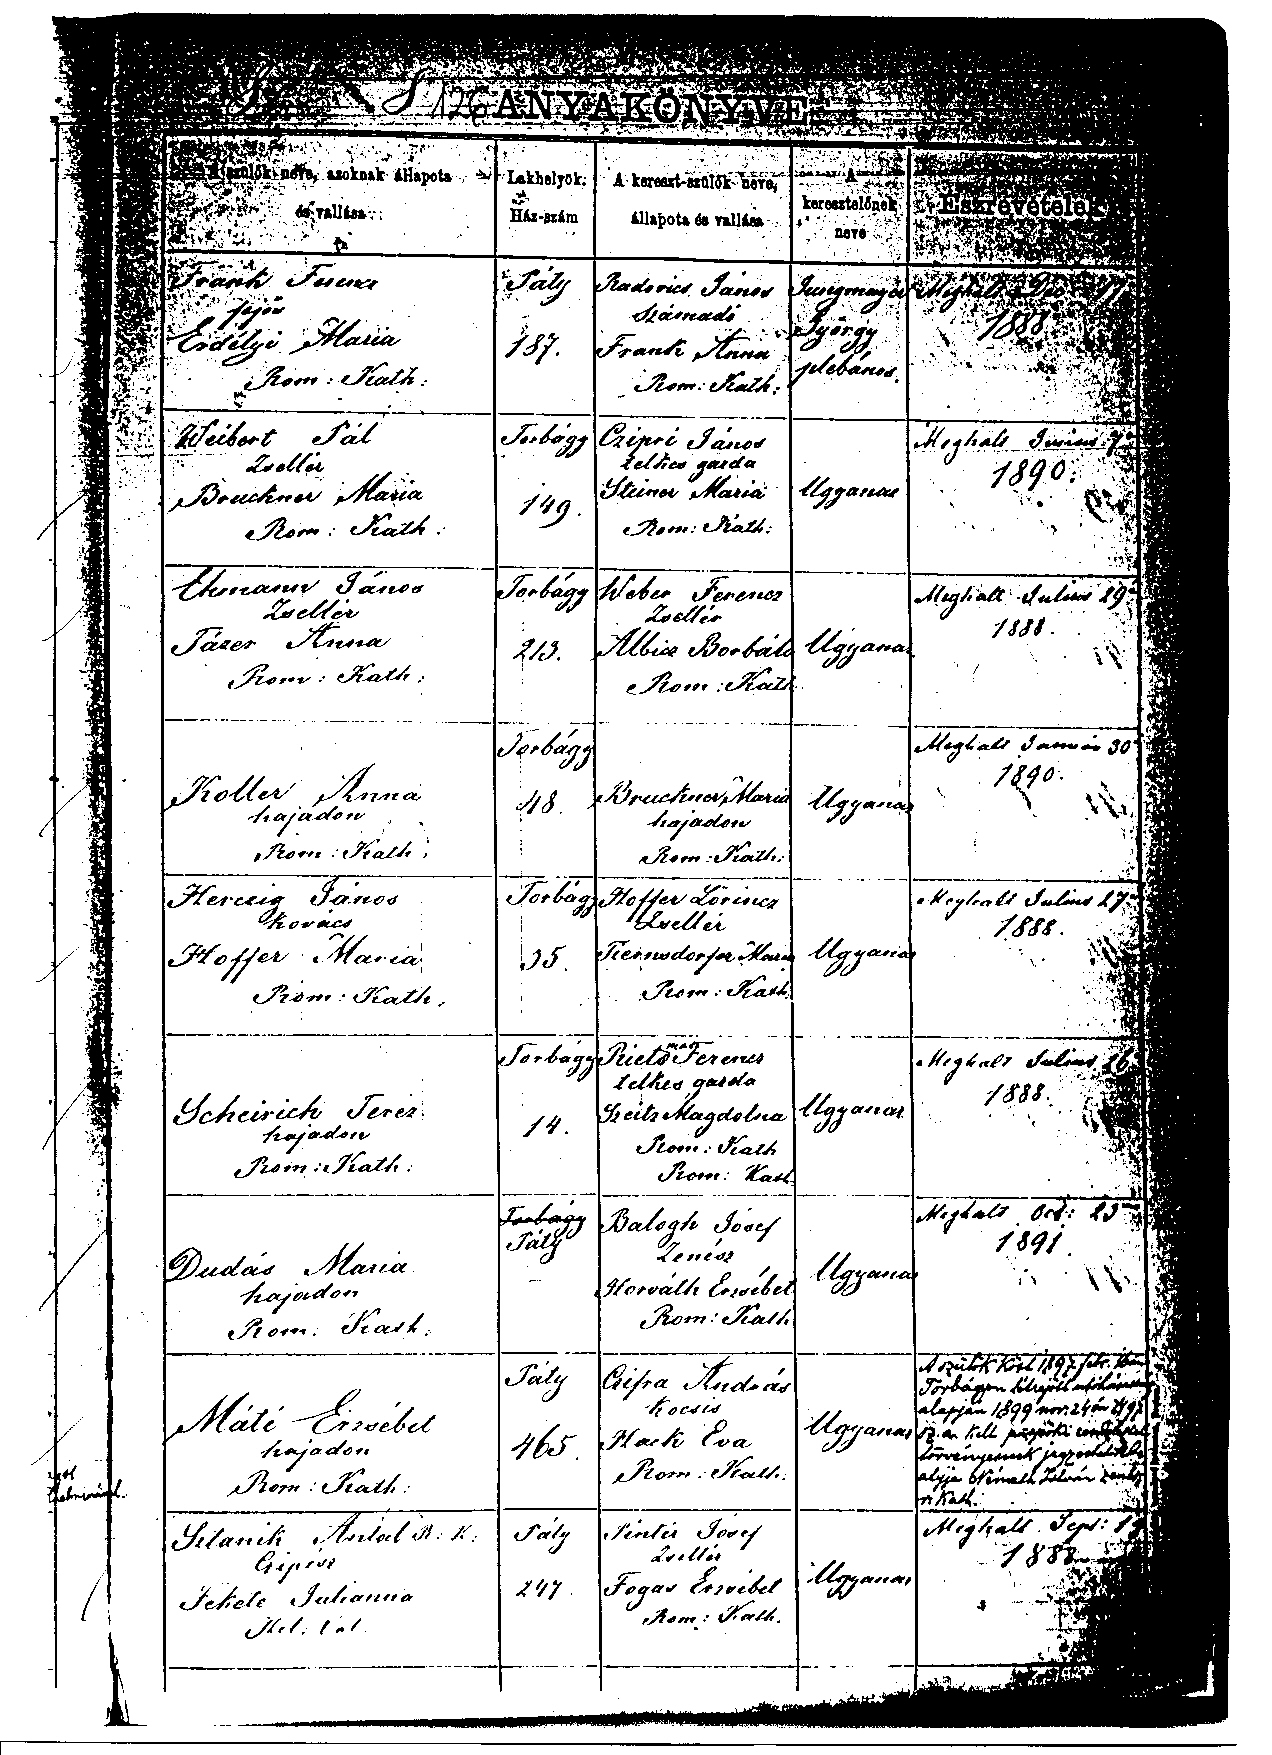 126 ANYAKÖNYVE
A szülők neve, azoknak állapota
és vallása
Lakhelyök.
Ház-szám
A kereszt-szülők neve,
állapota és vallása
A
keresztelőnek
neve
Észrevételek
Frank Ferencz
fejős
Erdélyi Maria
Rom: Kath:
Páty
187.
Radovics János
számadó
Frank Anna
Rom: Kath:
Jungmayer
György
plebános.
Meghalt Dec 17
1888
Weibert Pál
Zsellér
Bruckner Maria
Rom: Kath:
Torbágy
149.
Czipri János
telkes gazda
Steiner Maria
Rom: Kath:
Ugyanaz
Meghalt Junius 7
1890.
Ehmann János
Zsellér
Pázer Anna
Rom: Kath:
Torbágy
213.
Weber Ferencz
Zsellér
Albicz Borbála
Rom: Kath
Ugyanaz
Meghalt Julius 29
1888.
Koller Anna
hajadon
Rom: Kath:
Torbágy
48.
Bruckner Maria
hajadon
Rom: Kath:
Ugyanaz
Meghalt Január 30
1890.
Herczig János
kovács
Hoffer Maria
Rom: Kath.
Torbágy
35.
Hoffer Lőrincz
Zsellér
Maria
Rom: Kath.
Ugyanaz
Meghalt Julius 27
1888.
Scheirich Terez
hajadon
Rom: Kath:
Torbágy
14.
Ferencz
telkes gazda
Szeitz Magdolna
Rom: Kath
Rom: Kath
Ugyanaz
Meghalt Julius 26
1888.
Dudás Maria
hajadon
Rom: Kath:
Torbágy
Páty
Balogh Jósef
Zenész
Horváth Erzsébet
Rom: Kath
Ugyanaz
Meghalt Oct: 23
1891.
Máté Erzsébet
hajadon
Rom: Kath:
Páty
465.
Czifra András
kocsis
Hack Eva
Rom: Kath:
Ugyanaz
A szülők közt 1897 febr.
Torbágyon
alapján 1899 nov. 24 én
sz. a. kelt püspöki
törvényesnek
atyja Németh István
r. Kath.
Sztanik Antal R: K:
Gépész
Fekete Julianna
Páty
247.
Pintér Jósef
Zsellér
Fogas Erzsébet
Rom: Kath.
Ugyanaz
Meghalt Sept: 19
1888